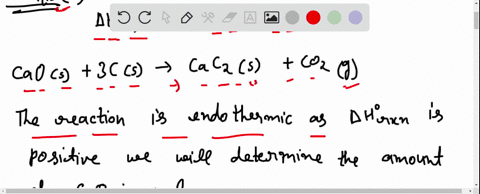 ΔH
CaO(s) + 3C(s) → CaC2(s) + CO2(g)
The reaction is endothermic as ΔH°rxn is
positive we will determine the amount